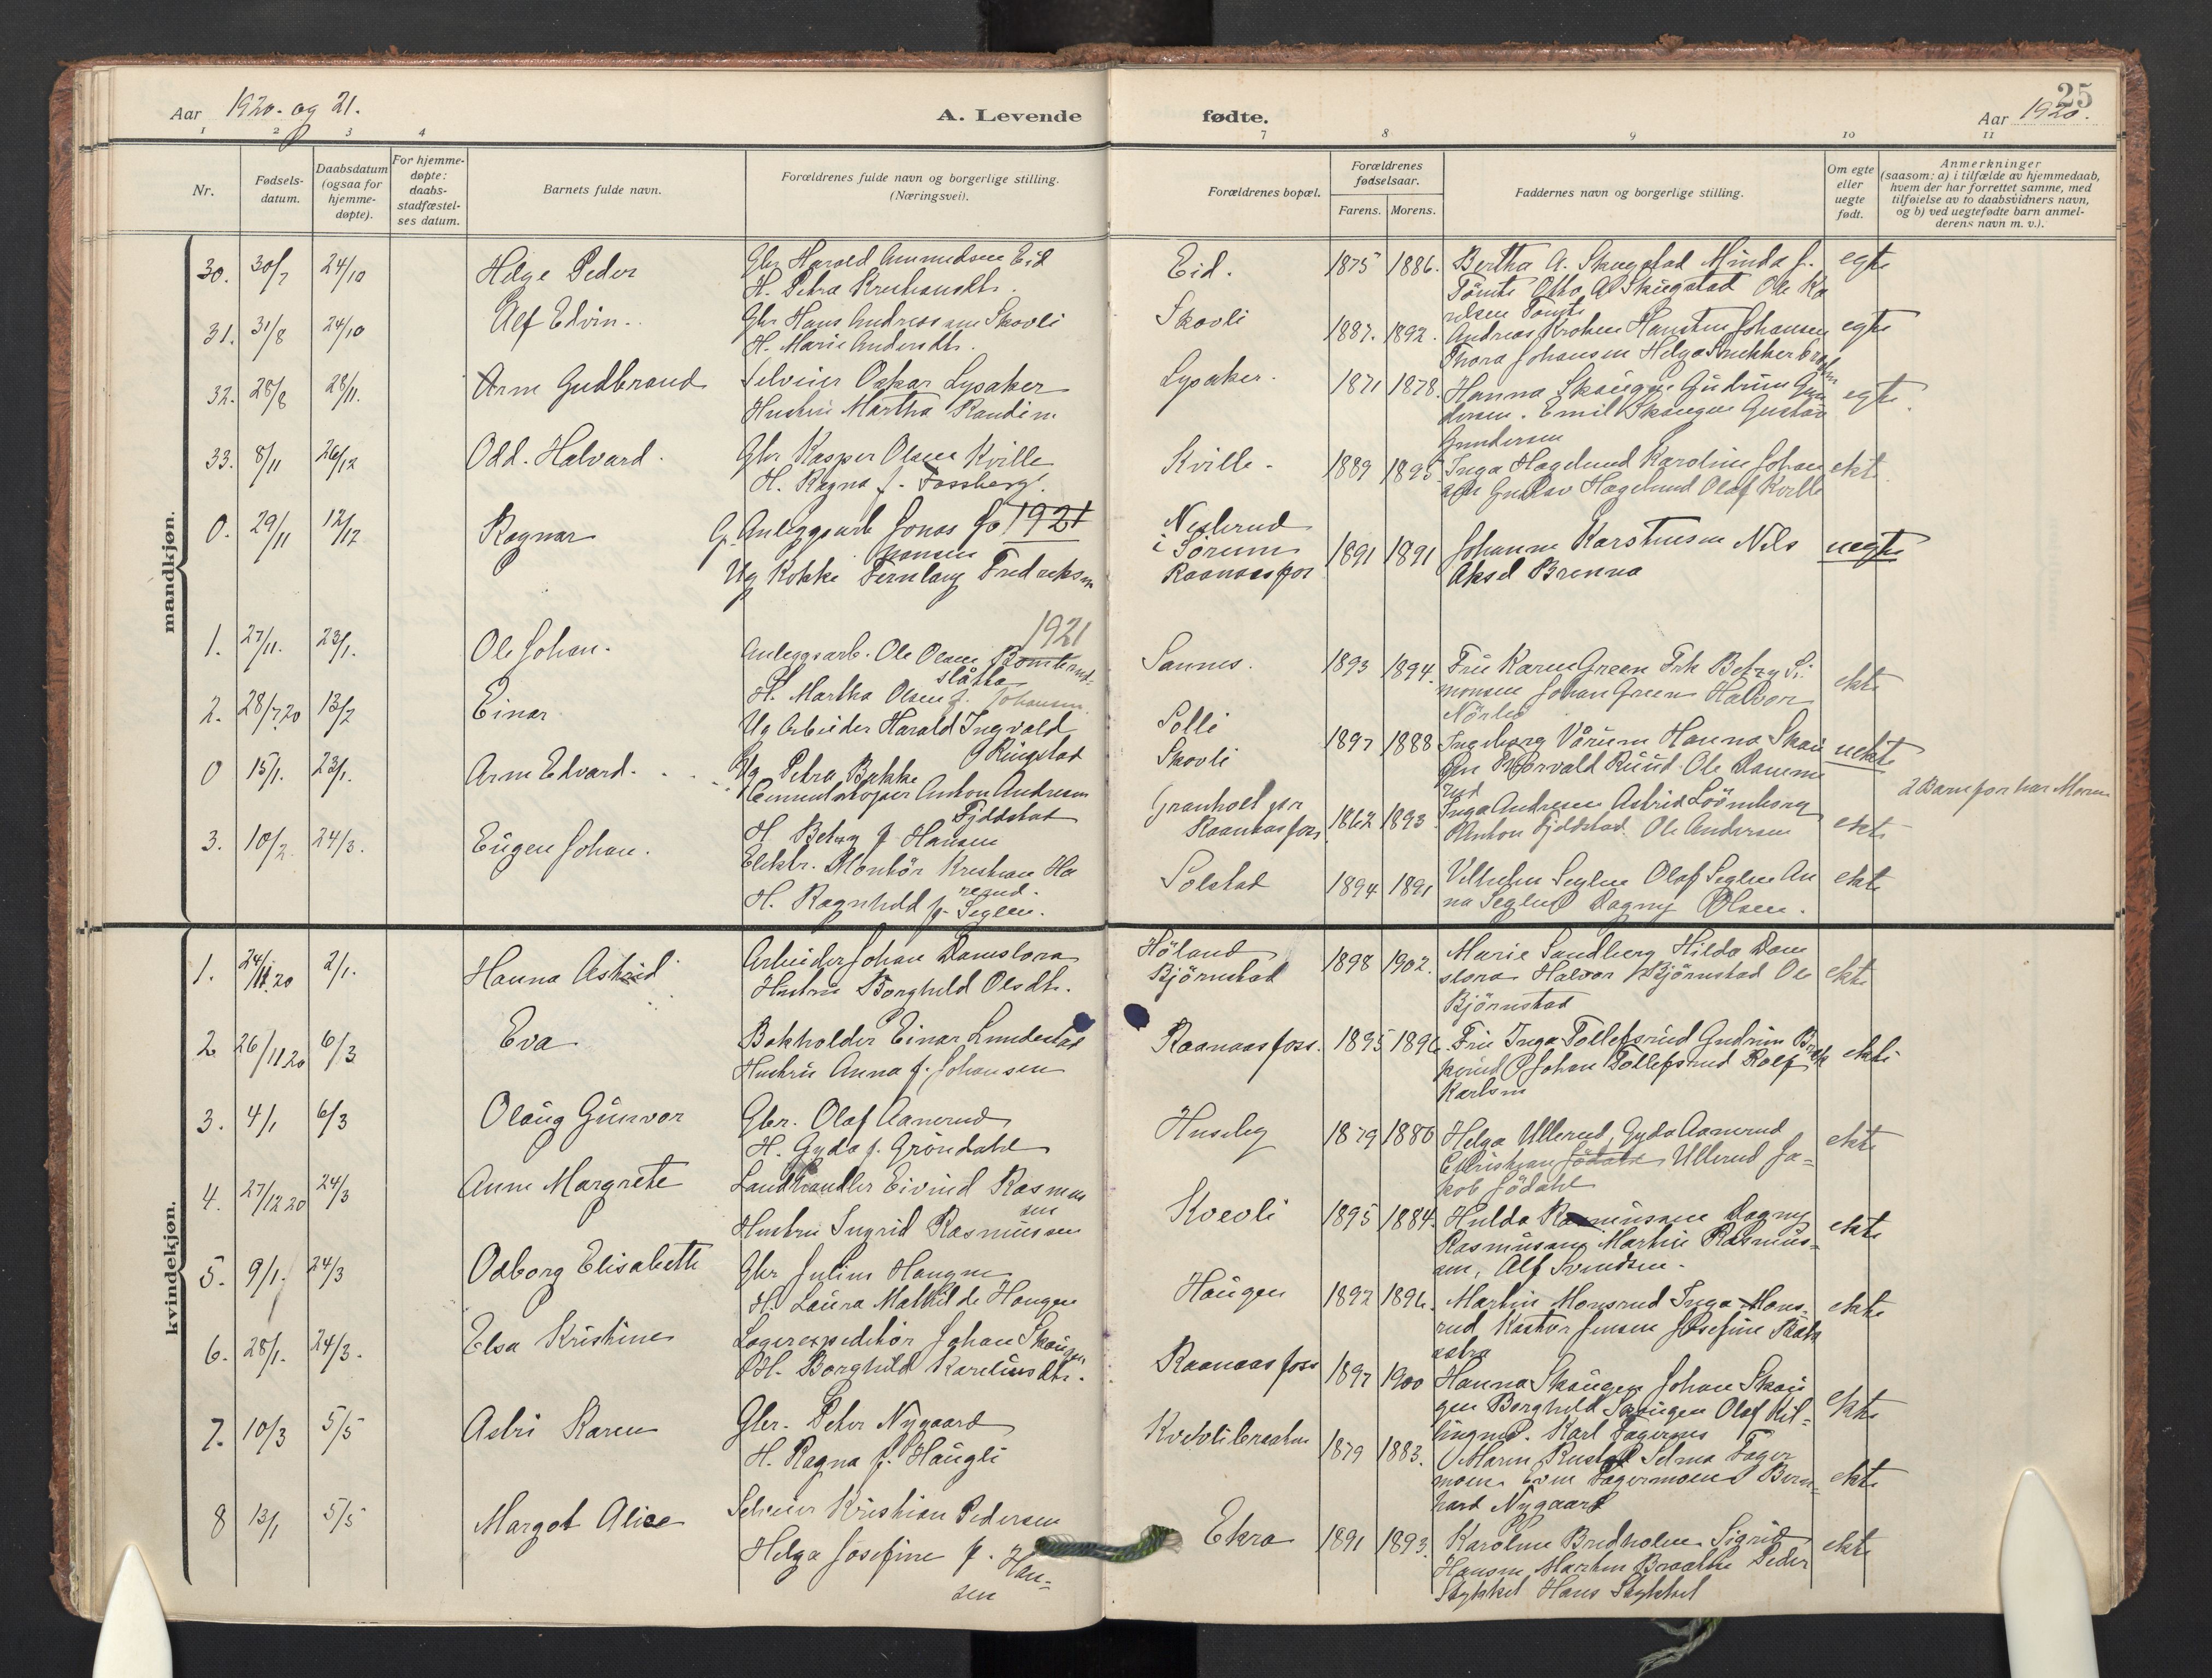 Aar 1920. og 21.
A. Levende
fødte.
25
Aar 1920.
1 2 3 4
7 8 9 10 11
Nr.
Fødsels-
datum.
Daabsdatum
(ogsaa for
hjemme-
døpte).
For hjemme-
døpte:
daabs-
stadfæstel-
ses datum.
Barnets fulde navn.
Forældrenes fulde navn og borgerlige stilling.
(Næringsvei).
Forældrenes bopæl.
Forældrenes
fødselsaar.
Farens. Morens.
Faddernes navn og borgerlige stilling.
Om egte
eller
uegte
født.
Anmerkninger
(saasom: a) i tilfælde av hjemmedaab,
hvem der har forrettet samme, med
tilføielse av to daabsvidners navn,
og b) ved uegtefødte barn anmel-
derens navn m. v.).
mandkjøn.
30. 30/7 24/10 Helge Peder
Gbr Harald Amundsen Eid
H. Petra Kristiansdtr.
Eid. 1875 1886.
Bertha A. Skugstad Minda f.
Tömte Otto A Skugstad Ole Ka
relsen Tömte
egte
31. 31/8 24/10 Alf Edvin.
Gbr Hans Andreassen Skovli
H. Marie Andersdtr.
Skovli 1887. 1892.
Andreas Krohen Hansten Johansen
Thora Johansen Helga
egte
32. 28/8 28/11. Arne Gudbrand
Selveier Oskar Lysaker
Hustru Martha Randine
Lysaker. 1871 1878.
Hanna Skaugen Gudrun Gun
dersen. Emil Skaugen Gustav
Gundersen
egte
33. 8/11 26/12 Odd. Halvard.
Gbr Kasper Olsen Kville
H. Ragna f. Fossberg.
Kville. 1889 1895
Inga Hagelund Karoline Johan
sen Gustav Hagelund Olaf Kville
ekt
0. 29/11 12/12 Ragnar
G. Anlegsarb Jonas Jo 1921
hansen
Ug Kokke Fernlaug Fredriksen
Nesterud
i Sörum
Raanaasfos
1891 1891
Johanne Karstensen Nils
Aksel Brenna
uegte
1921
1. 27/11. 23/1. Ole Johan.
Anlegsarb. Ole Olsen Bomterud
slåtta
H. Martha Olsen f. Johansen.
Sannes. 1893 1894.
Fru Karen Green Frk Betzy Si
monsen Johan Green Halvor
Nörlie
ekte
2. 28/7 20 13/2 Einar
Ug Arbeider Harald Ingvald
Ringstad
Ug Petra Bakke
Solli
Skovli
1897 1888
Ingeborg Vårum Hanna Skau
gen Thorvald Ruud Ole Damme
rud
uekte
2 Barn før har Moren
0 15/1. 23/1. Arne Edvard.
Cementstøper Anton Andresen
Fjeldstad
H. Betzy f Hansen
Granholt pr
Raanaasfoss.
1862 1893
Inga Andresen Astrid Lövenborg
Anton Fjeldstad Ole Andersen
ekte
3. 10/2 24/3. Eugen Johan.
Elektr. Montör Kristian Ha
rerud.
H. Ragnhild f. Seglen.
Solstad 1894 1891
Vilhelm Seglen Olaf Seglen An
na Seglen Dagny Olsen.
ekte
kvindekjøn.
1. 24/11.20 2/1. Hanna Astrid
Arbeider Johan Damslora
Hustru Borghild Olsdtr.
Höland
Björnstad
1898 1902.
Marie Sandberg Hilda Dam
slora Halvor Björnstad Ole
Björnstad
ekte
2 26/11 20 6/3 Eva
Bokholder Einar Lundestad
Hustru Anna f. Johansen
Raanaasfoss. 1895 1896.
Fru Inga Tollefsrud Gudrun Brek
kerud Johan Tollefsrud Rolf
Karlsen
ekte
3. 4/1 6/3 Olaug Gunvor
Gbr. Olaf Aamerud
H. Gyda f. Gröndahl
Huseby 1879 1886
Helga Ullerud, Gyda Aamerud
Christian Jödahl Ullerud Ja-
kob Jödahl
ekte
4. 27/12 20 24/3 Anne Margrete
Landhandler Eivind Rasmus
sen
Hustru Ingrid Rasmussen
Kvevli 1895 1884.
Hulda Rasmussen Dagny
Rasmussen Martin Rasmus-
sen, Alf Svendsen.
ekte
5. 9/1. 24/3 Odborg Elisabeth
Gbr Julius Haugen
H. Laura Mathilde Haugen
Haugen 1892 1896.
Martin Monsrud Inga Mons-
rud Kastor Jensen Josefine
ekte
6. 28/1. 24/3. Elsa Kristine
Lagerexpeditör Johan Skaugen
H. Borghild Kareliusdtr.
Raanaasfoss 1897 1900
Hanna Skaugen Johan Skau
gen Borghild Skaugen Olaf Kil-
lingmo. Karl Fagernes
ekte
7. 10/3 5/5 Astri Karen
Gbr. Peter Nygaard
H. Ragna f. Haugli
Kvevlibraaten 1879 1883.
Maren Rustad Selma Fager
moen Even Fagermoen Bern-
hard Nygaard
ekte
8 13/1 5/5 Margot Alise
Selveier Kristian Pedersen
Helga Josefine f. Han-
sen
Ekra 1891 1893.
Karoline Bredholen Sigrid
Hansen Martin Braathe Peder
Stykket Hans Stykket
ekte